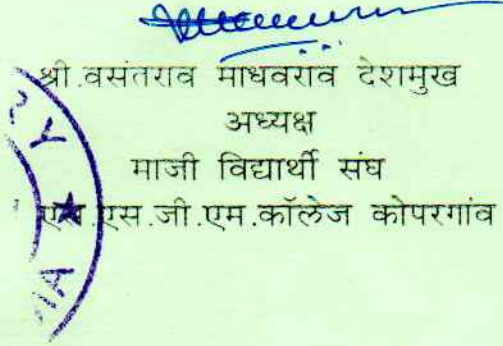 श्री.वसंतराव माधवराव देशमुख
अध्यक्ष
माजी विद्यार्थी संघ
एस.एस.जी.एम.कॉलेज कोपरगांव